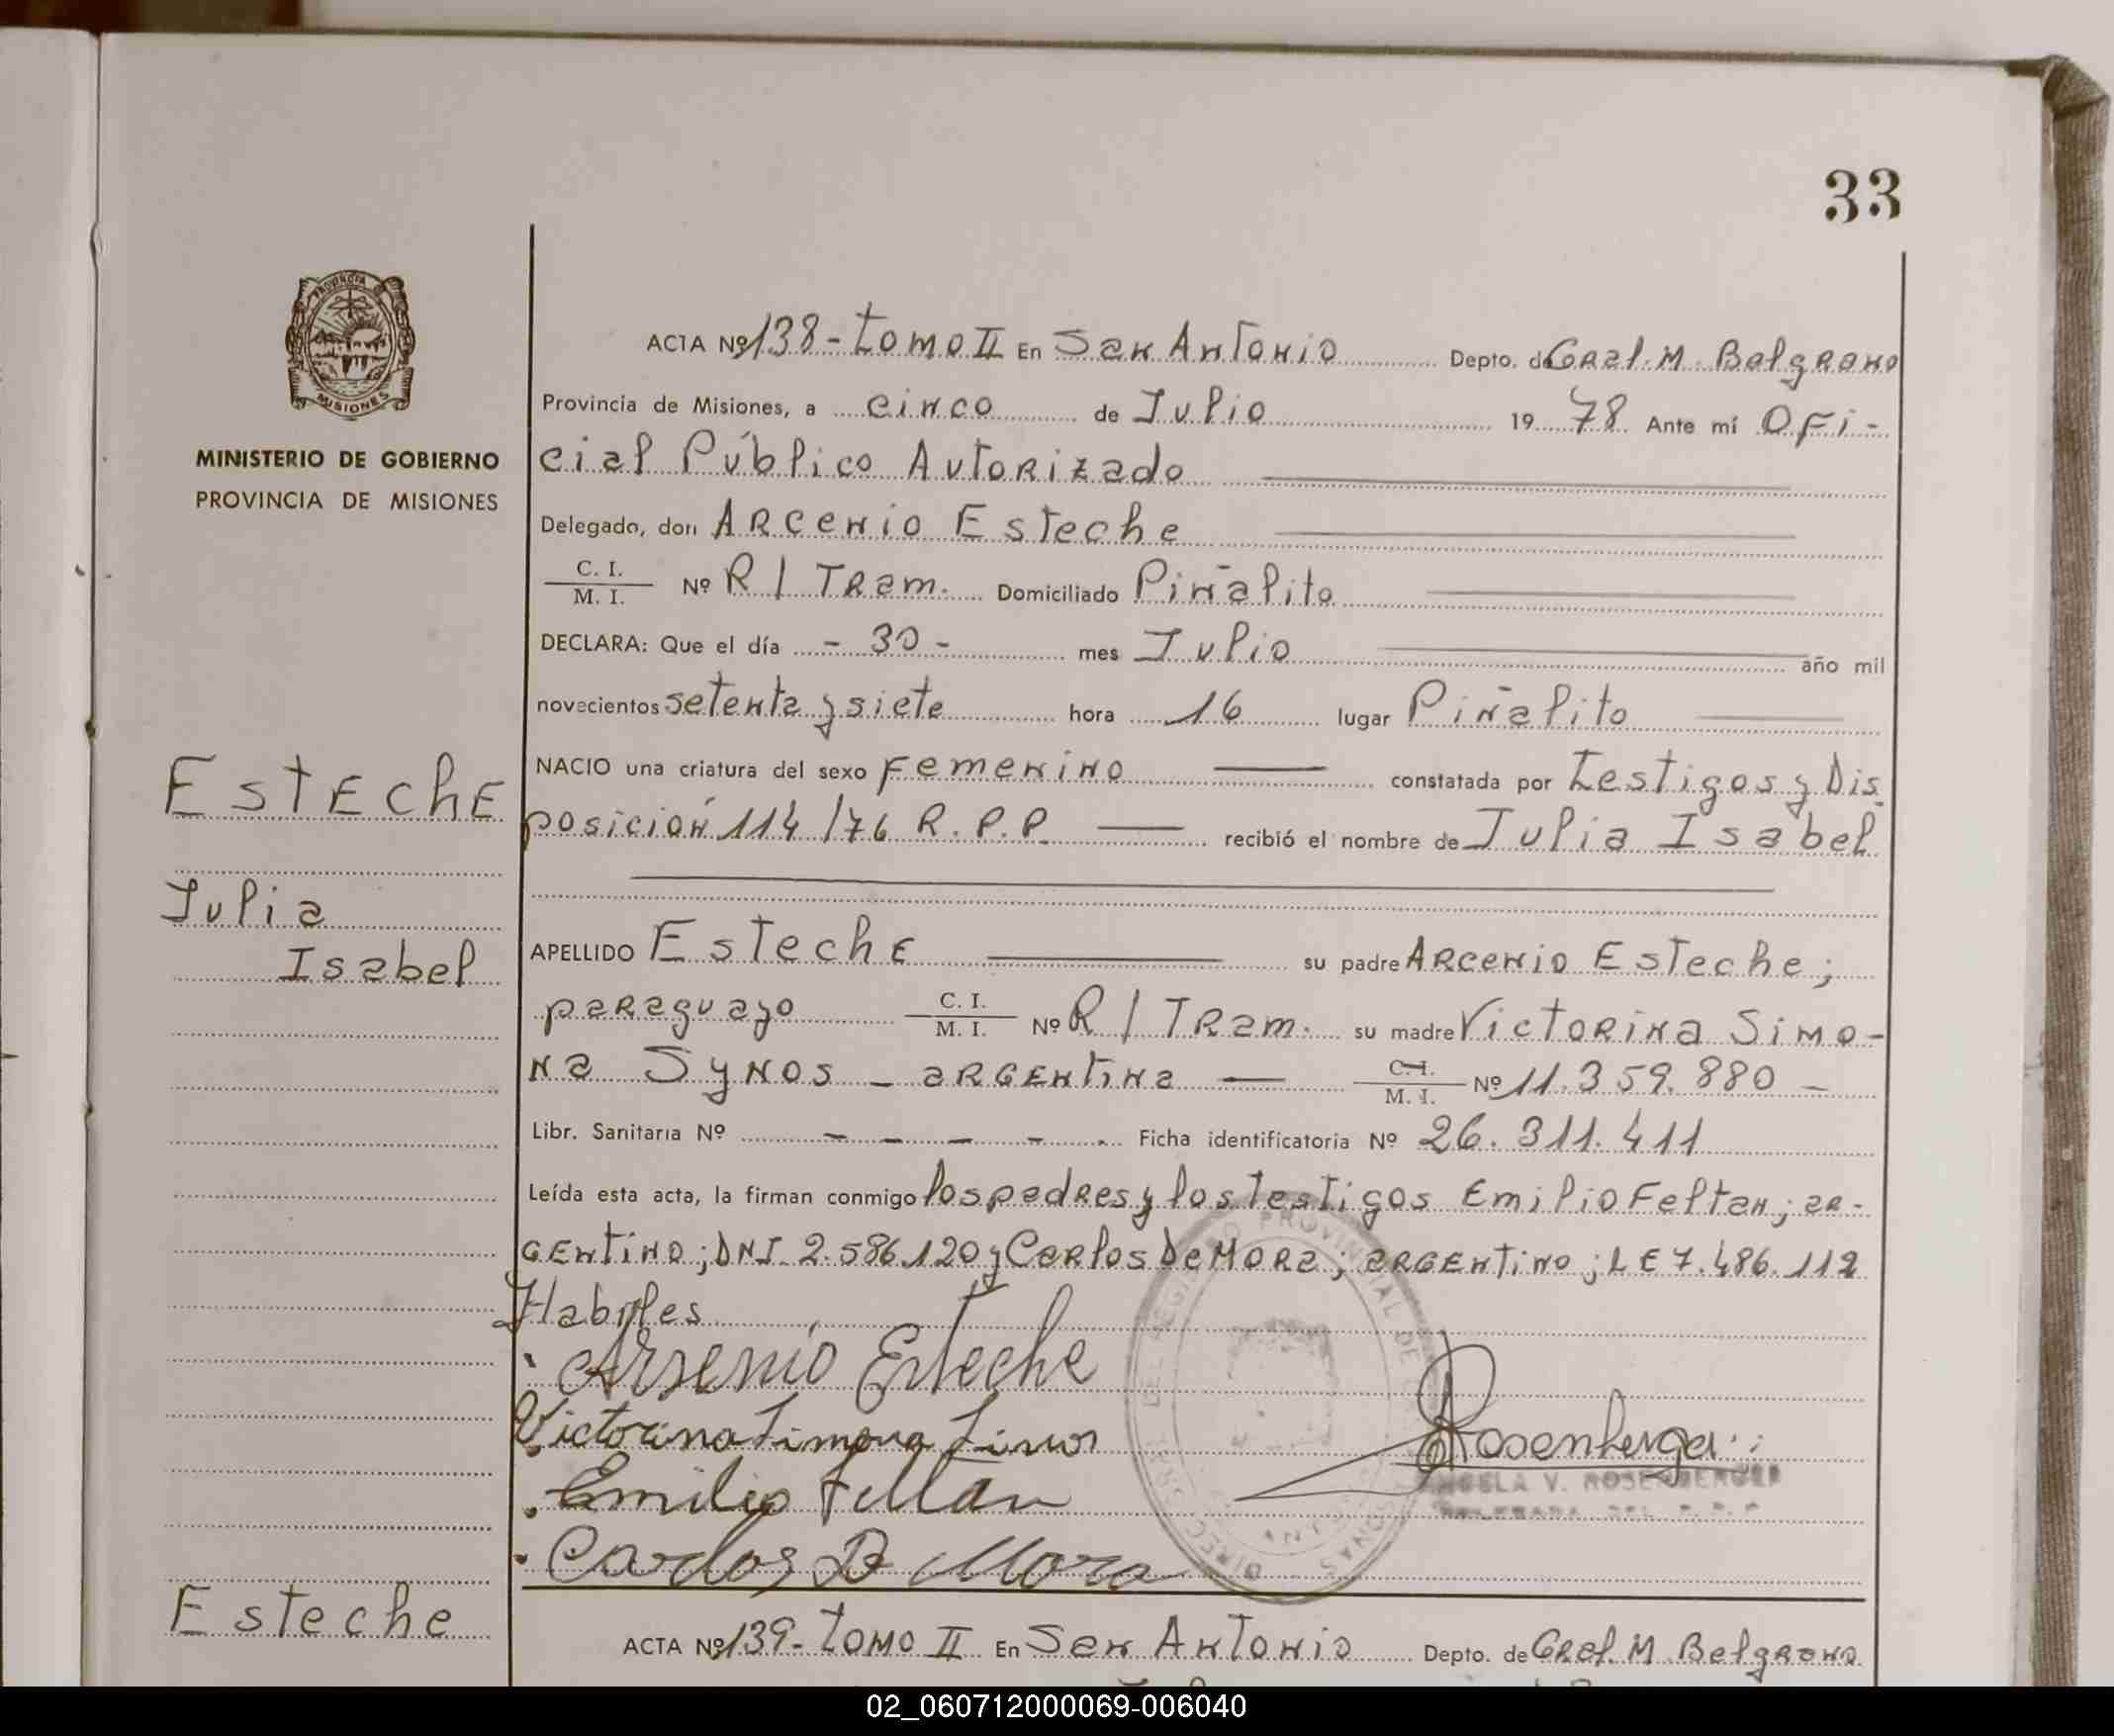 33
PROVINCIA
MISIONES
MINISTERIO DE GOBIERNO
PROVINCIA DE MISIONES
ACTA Nº 138 - Tomo II En San Antonio Depto. de Gral. M. Belgrano
Provincia de Misiones, a cinco de Julio 1978 Ante mí Ofi-
cial Público Autorizado
Delegado, don Arcenio Esteche
C. I. / M. I. Nº R / Tram. Domiciliado Piñalito
DECLARA: Que el día - 30 - mes Julio año mil
novecientos setenta y siete hora 16 lugar Piñalito
NACIO una criatura del sexo Femenino constatada por Testigos y Dis
posición 114 / 76 R. P. P. recibió el nombre de Julia Isabel
APELLIDO Esteche su padre Arcenio Esteche;
paraguayo C. I. / M. I. Nº R / Tram. su madre Victorina Simo-
na Synos - argentina — C. I. / M. I. Nº 11.359.880 -
Libr. Sanitaria Nº - - - - - Ficha identificatoria Nº 26.311.411
Leída esta acta, la firman conmigo los padres y los testigos Emilio Feltan; ar-
gentino; DNI 2.586.120 y Carlos De Mora; argentino; L E 7.486.112
Habiles
Esteche
Julia
Isabel
Arsenio Esteche
Victorina Simona
Emilio
Carlos D Mora
Rosenberger
ANGELA V. ROSENBERGER
DELEGADA DEL R. P. P.
Esteche
ACTA Nº 139 - Tomo II En San Antonio Depto. de Gral. M. Belgrano
02_060712000069-006040